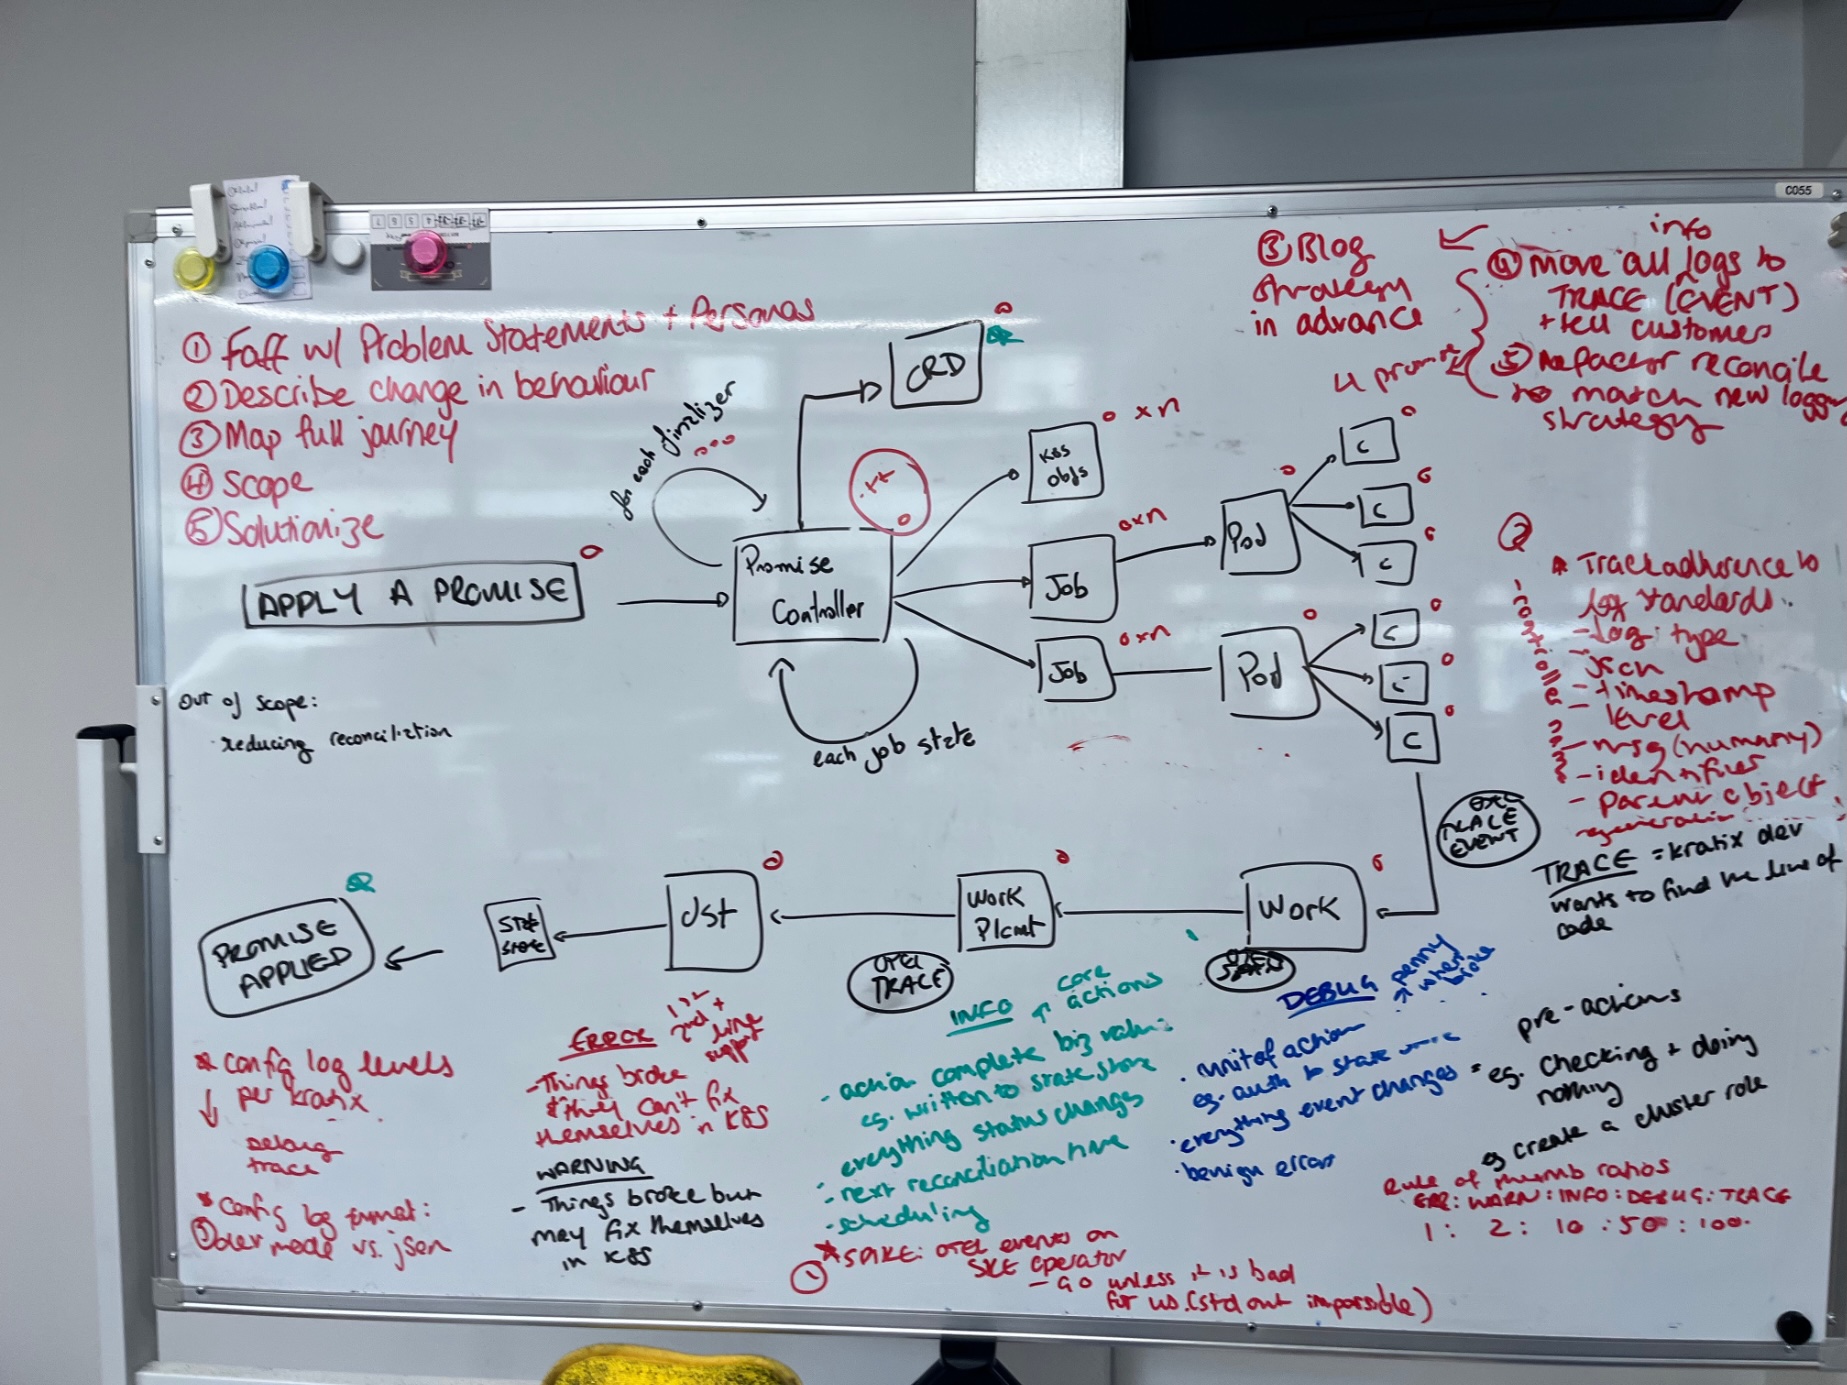 C055
① Faff w/ Problem Statements + Personas
② Describe change in behaviour
③ Map full journey
④ Scope
⑤ Solutionize
③ Blog
strategy
in advance
info
④ move all logs to
TRACE (EVENT)
+ tell customers
⑤ Refactor reconcile
to match new logging
strategy
APPLY A PROMISE
for each finalizer
Promise
Controller
each job state
CRD
K8S
objs
x n
Job
x n
Job
x n
Pod
Pod
C
C
C
C
C
C
out of scope:
· reducing reconciliation
②
* Track adherence to
log standards
- log type
json
- timestamp
level
- msg (humany)
- identifier
- parent object
OTEL
TRACE
EVENT
TRACE = kratix dev
wants to find the line of
code
Work
Work
Plcmt
OTEL
TRACE
dst
STATE
STORE
PROMISE
APPLIED
* config log levels
per kratix
debug
trace
* Config log format:
mode vs. json
ERROR
1st
2nd +
line
support
- Things broke
& they can't fix
themselves in K8S
WARNING
- Things broke but
may fix themselves
in K8S
INFO
core
actions
- action complete biz value:
eg. written to state store
- everything status changes
- next reconciliation time
- scheduling
DEBUG
where
broke
· unit of action
eg. auth to state store
· everything event changes
· benign errors
pre-actions
eg. checking + doing
nothing
eg create a cluster role
Rule of thumb ratios
ERR: WARN: INFO: DEBUG: TRACE
1: 2: 10: 50: 100
① * SPIKE: OTEL events on
SKE operator
- GO unless it is bad
for us. (std out impossible)